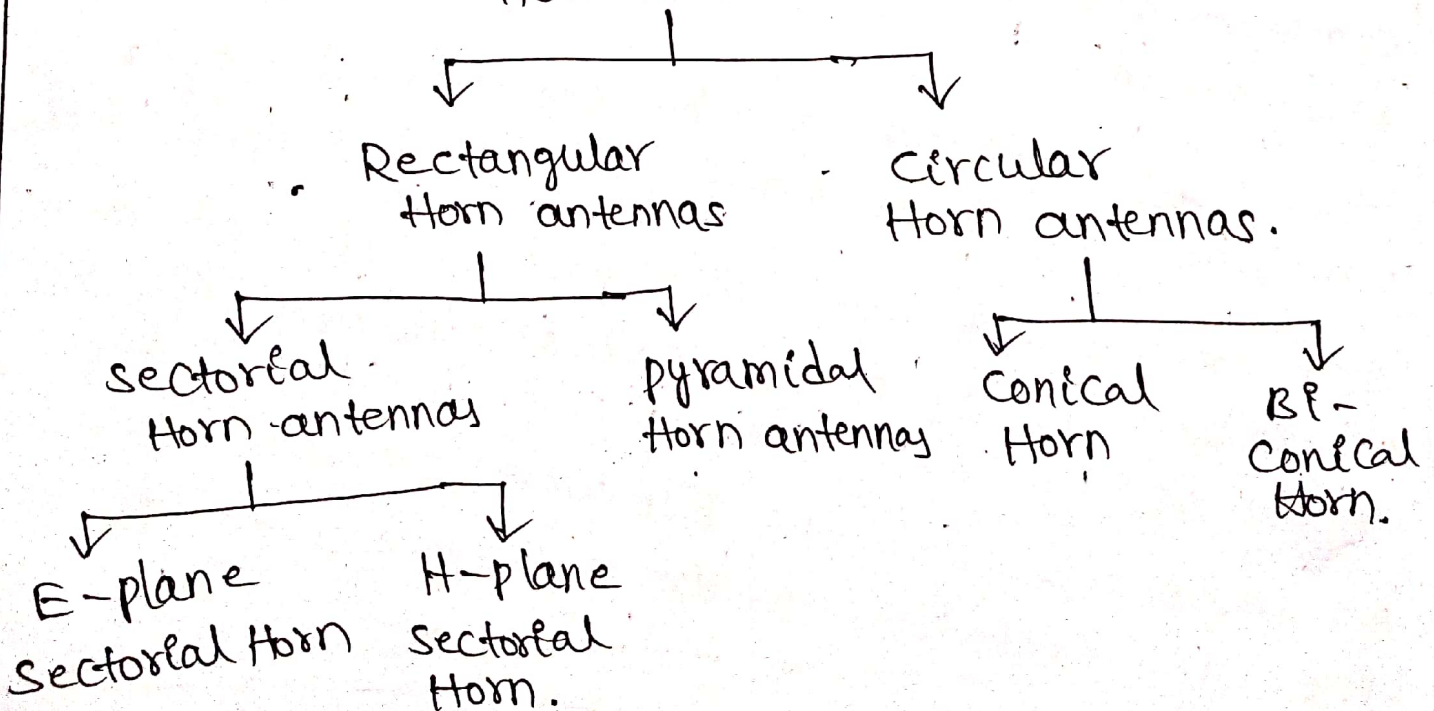 Rectangular
Horn antennas
circular
Horn antennas.
sectorial
Horn antennas
pyramidal
Horn antennas
conical
Horn
Bi-
conical
Horn.
E-plane
sectorial Horn
H-plane
sectorial
Horn.